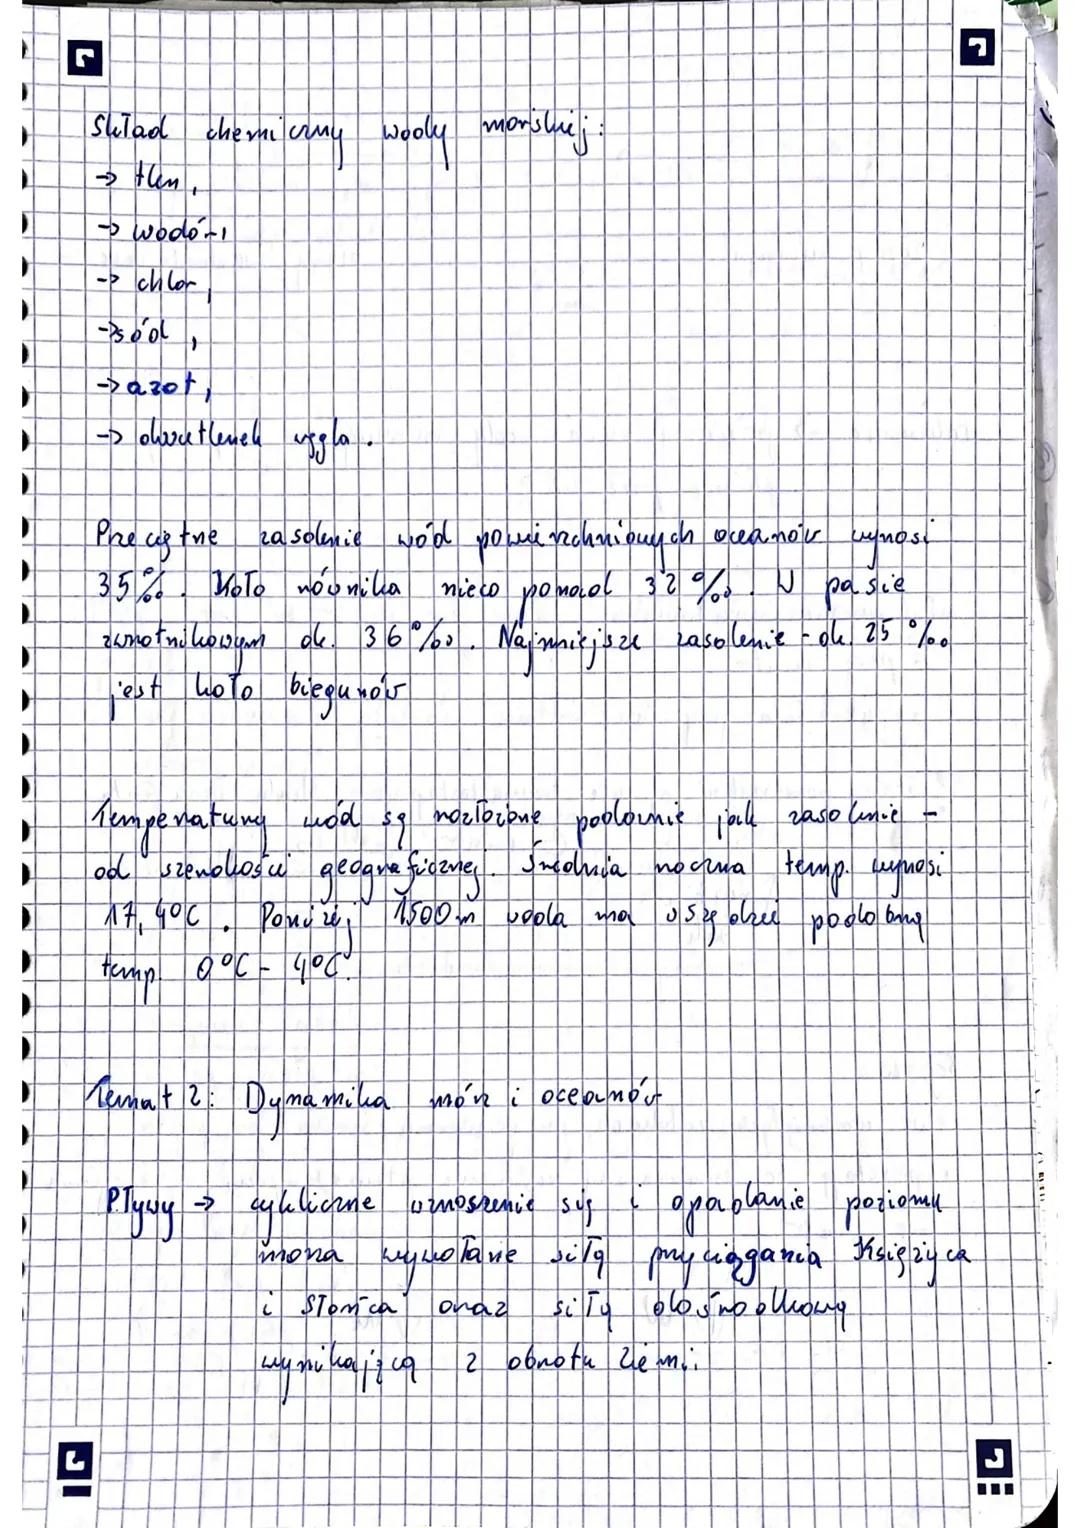 Skład chemiczny wody morskiej:
→ tlen,
→ wodór,
→ chlor,
→ sód,
→ azot,
→ dwutlenek węgla.
Przeciętne zasolenie wód powierzchniowych oceanów wynosi
35‰. Koło równika nieco ponad 32‰. W pasie
zwrotnikowym ok. 36‰. Najmniejsze zasolenie - ok. 25‰
jest koło biegunów
Temperatury wód są rozłożone podobnie jak zasolenie -
od szerokości geograficznej. Średnia roczna temp. wynosi
17,4°C. Poniżej 1500m woda ma wszędzie podobną
temp. 0°C - 4°C.
Temat 2: Dynamika mórz i oceanów
Pływy → cykliczne wznoszenie się i opadanie poziomu
morza wywołane siłą przyciągania Księżyca
i Słońca oraz siłą dośrodkową
wynikającą z obrotu Ziemi.